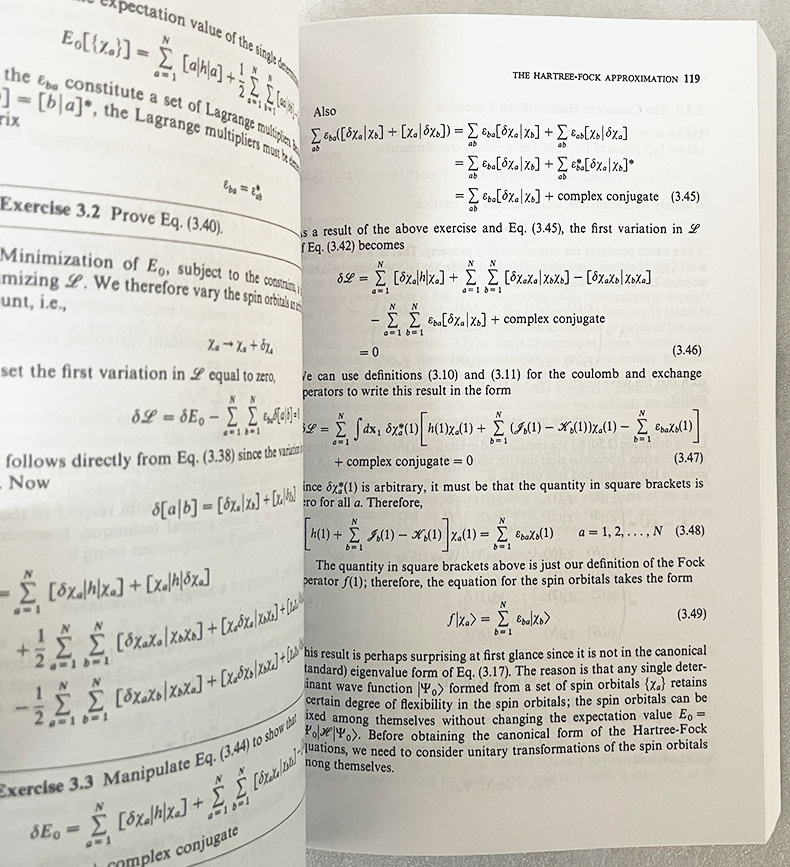 expectation value of the single
E₀[{χₐ}] = Σ_{a=1}^{N} [a|h|a] + 1/2 Σ_{a=1}^{N} Σ_{b=1}^{N} [aa|bb]
the ε_{ba} constitute a set of Lagrange multipliers.
] = [b|a]*, the Lagrange multipliers must be
rix
ε_{ba} = ε*_{ab}
Exercise 3.2 Prove Eq. (3.40).
Minimization of E₀, subject to the constraints,
mizing ℒ. We therefore vary the spin orbitals an
unt, i.e.,
χₐ → χₐ + δχₐ
set the first variation in ℒ equal to zero,
δℒ = δE₀ − Σ_{a=1}^{N} Σ_{b=1}^{N} ε_{ba}δ[a|b] =
follows directly from Eq. (3.38) since the variation
. Now
δ[a|b] = [δχₐ|χ_b] + [χₐ|δχ_b]
= Σ_{a=1}^{N} [δχₐ|h|χₐ] + [χₐ|h|δχₐ]
+ 1/2 Σ_{a=1}^{N} Σ_{b=1}^{N} [δχₐχₐ|χ_bχ_b] + [χₐδχₐ|χ_bχ_b] +
− 1/2 Σ_{a=1}^{N} Σ_{b=1}^{N} [δχₐχ_b|χ_bχₐ] + [χₐδχ_b|χ_bχₐ] +
Exercise 3.3 Manipulate Eq. (3.44) to show that
δE₀ = Σ_{a=1}^{N} [δχₐ|h|χₐ] + Σ_{a=1}^{N} Σ_{b=1}^{N} [δχₐχₐ|χ_bχ_b]
complex conjugate
THE HARTREE-FOCK APPROXIMATION 119
Also
Σ_{ab} ε_{ba}([δχₐ|χ_b] + [χₐ|δχ_b]) = Σ_{ab} ε_{ba}[δχₐ|χ_b] + Σ_{ab} ε_{ab}[χ_b|δχₐ]
= Σ_{ab} ε_{ba}[δχₐ|χ_b] + Σ_{ab} ε*_{ba}[δχₐ|χ_b]*
= Σ_{ab} ε_{ba}[δχₐ|χ_b] + complex conjugate (3.45)
s a result of the above exercise and Eq. (3.45), the first variation in ℒ
f Eq. (3.42) becomes
δℒ = Σ_{a=1}^{N} [δχₐ|h|χₐ] + Σ_{a=1}^{N} Σ_{b=1}^{N} [δχₐχₐ|χ_bχ_b] − [δχₐχ_b|χ_bχₐ]
− Σ_{a=1}^{N} Σ_{b=1}^{N} ε_{ba}[δχₐ|χ_b] + complex conjugate
= 0 (3.46)
e can use definitions (3.10) and (3.11) for the coulomb and exchange
perators to write this result in the form
ℒ = Σ_{a=1}^{N} ∫dx₁ δχₐ*(1)[h(1)χₐ(1) + Σ_{b=1}^{N} (𝒥_b(1) − 𝒦_b(1))χₐ(1) − Σ_{b=1}^{N} ε_{ba}χ_b(1)]
+ complex conjugate = 0 (3.47)
ince δχₐ*(1) is arbitrary, it must be that the quantity in square brackets is
ro for all a. Therefore,
[h(1) + Σ_{b=1}^{N} 𝒥_b(1) − 𝒦_b(1)]χₐ(1) = Σ_{b=1}^{N} ε_{ba}χ_b(1) a = 1, 2, . . . , N (3.48)
The quantity in square brackets above is just our definition of the Fock
perator f(1); therefore, the equation for the spin orbitals takes the form
f|χₐ⟩ = Σ_{b=1}^{N} ε_{ba}|χ_b⟩ (3.49)
his result is perhaps surprising at first glance since it is not in the canonical
tandard) eigenvalue form of Eq. (3.17). The reason is that any single deter-
inant wave function |Ψ₀⟩ formed from a set of spin orbitals {χₐ} retains
certain degree of flexibility in the spin orbitals; the spin orbitals can be
ixed among themselves without changing the expectation value E₀ =
Ψ₀|ℋ|Ψ₀⟩. Before obtaining the canonical form of the Hartree-Fock
quations, we need to consider unitary transformations of the spin orbitals
nong themselves.